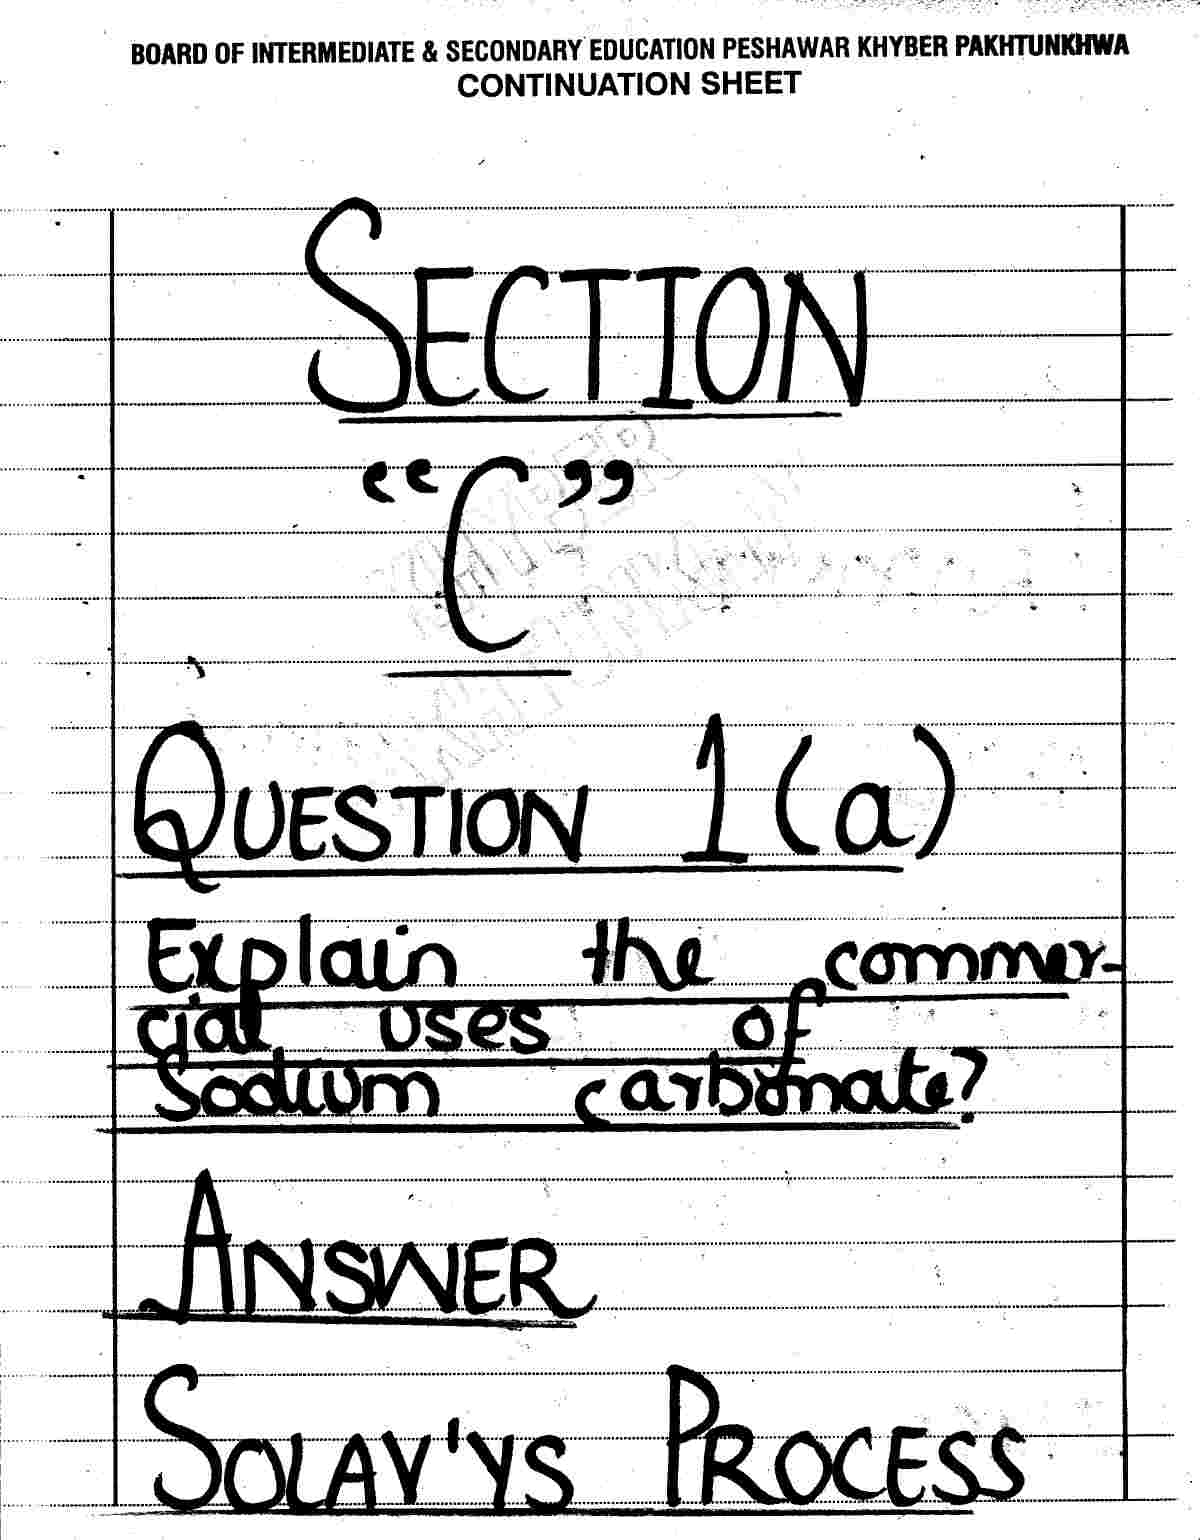 BOARD OF INTERMEDIATE & SECONDARY EDUCATION PESHAWAR KHYBER PAKHTUNKHWA
CONTINUATION SHEET
SECTION
"C"
QUESTION 1(a)
Explain the commer-
cial uses of
Sodium carbonate?
ANSWER
SOLAV'YS PROCESS